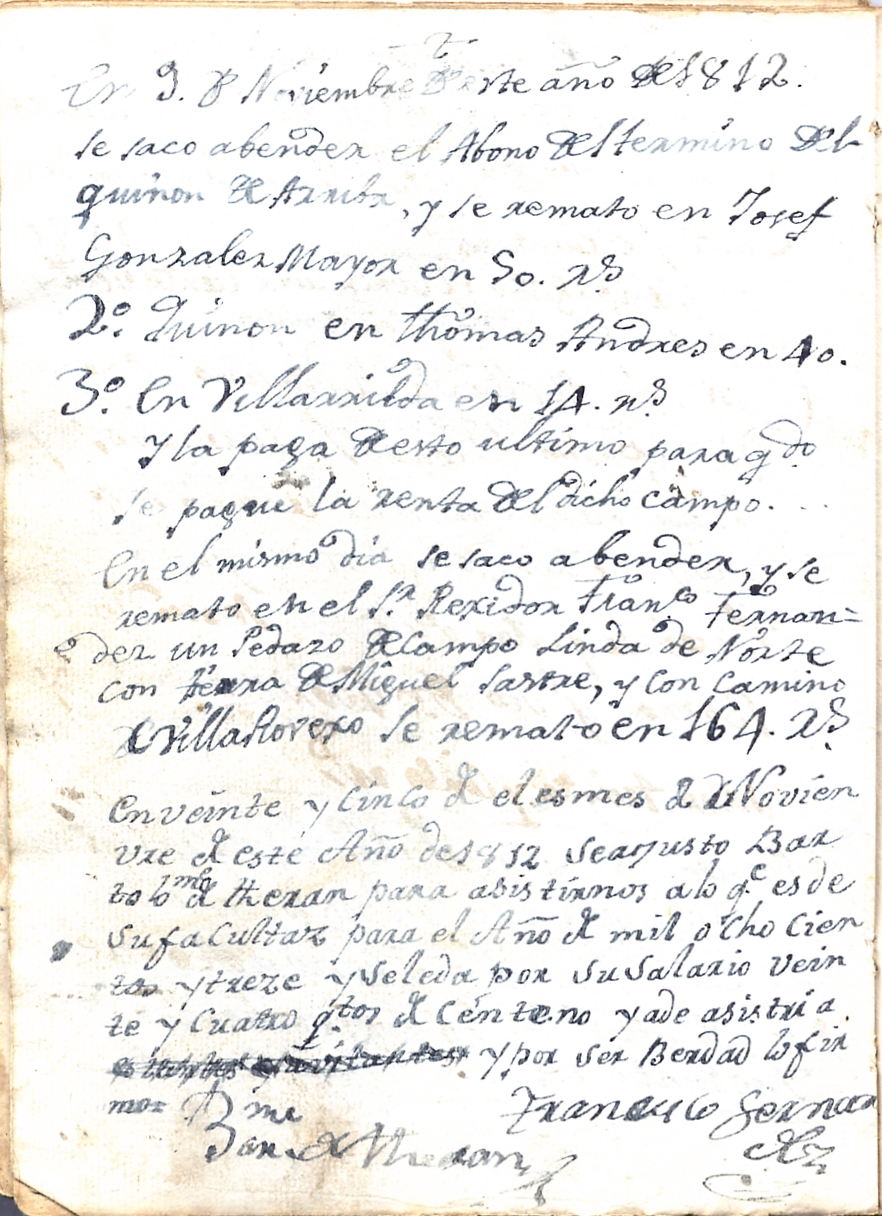 En 9. de Noviembre de este año de 1812.
se saco abender el Abono del termino del
quiñon de Arriba, y se remato en Josef
Gonzalez Mayor en 50. rs
2º. Quiñon en thomas Andres en 40.
3º. En Villarrilda en 14. rs
y la paga desto ultimo para qdo
se pague la renta del dicho campo. ...
En el mismo dia se saco abender, y se
remato en el Sr. Rexidor Franco Fernan=
dez un Pedazo de campo Linda de Norte
con tierra de Miguel Sastre, y con camino
de VillaRovexo se remato en 164. rs
En veinte y Cinco de el es mes de Novien
vre de este Año de 1812 seajusto Bar
tolome de theran para asistirnos alo qe es de
su facultaz para el Año de mil ocho cien
tos y treze y seleda por su salario vein
te y Cuatro qtos de Centeno y ade asistir a
y por ser Berdad lo fir
mor
Bar de Theran
Francisco Fernan
dez